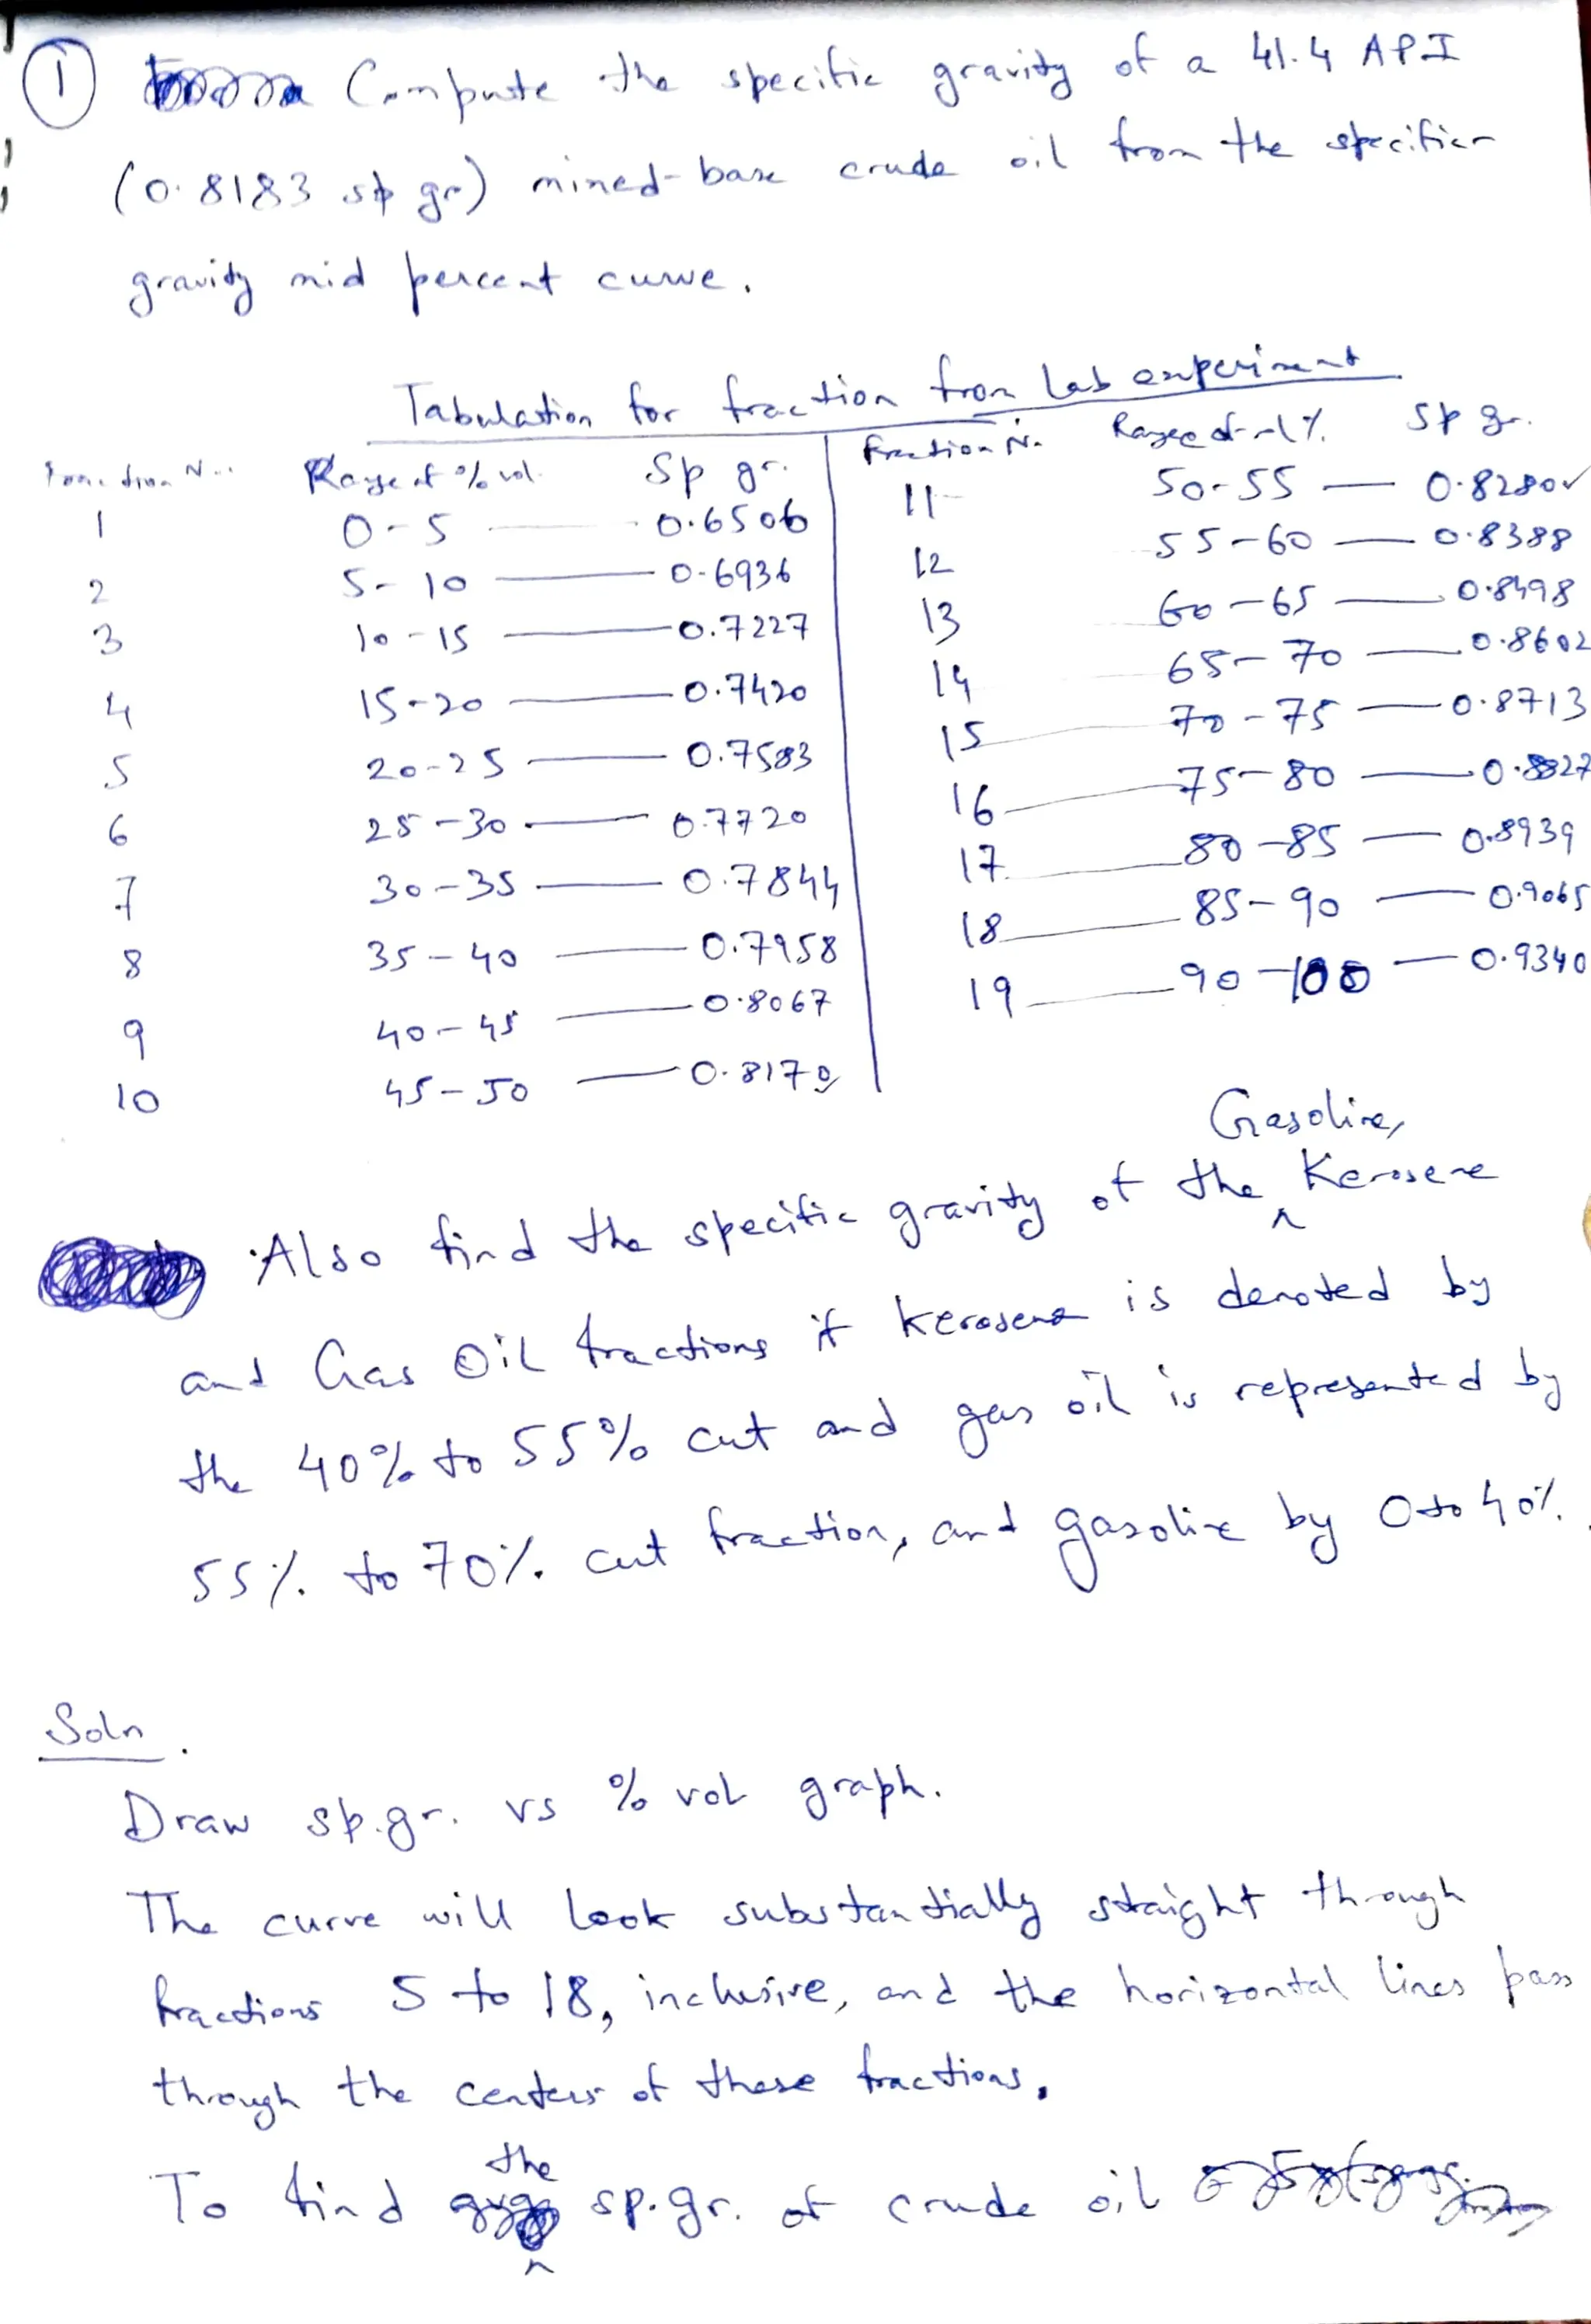 1 Compute the specific gravity of a 41.4 API
(0.8183 sp gr) mixed-base crude oil from the specific
gravity mid percent curve.
Tabulation for fraction from Lab experiment
Fraction No. Range of % vol. Sp gr.
1 0-5 — 0.6506
2 5-10 — 0.6936
3 10-15 — 0.7227
4 15-20 — 0.7420
5 20-25 — 0.7583
6 25-30 — 0.7720
7 30-35 — 0.7844
8 35-40 — 0.7958
9 40-45 — 0.8067
10 45-50 — 0.8170
Fraction No. Range of vol % Sp gr.
11 50-55 — 0.8280
12 55-60 — 0.8388
13 60-65 — 0.8498
14 65-70 — 0.8602
15 70-75 — 0.8713
16 75-80 — 0.8827
17 80-85 — 0.8939
18 85-90 — 0.9065
19 90-100 — 0.9340
Also find the specific gravity of the Gasoline, Kerosene
and Gas Oil fractions if kerosene is denoted by
the 40% to 55% cut and gas oil is represented by
55% to 70% cut fraction, and gasoline by 0 to 40%.
Soln.
Draw sp.gr. vs % vol graph.
The curve will look substantially straight through
fractions 5 to 18, inclusive, and the horizontal lines pass
through the centers of these fractions.
To find the sp.gr. of crude oil